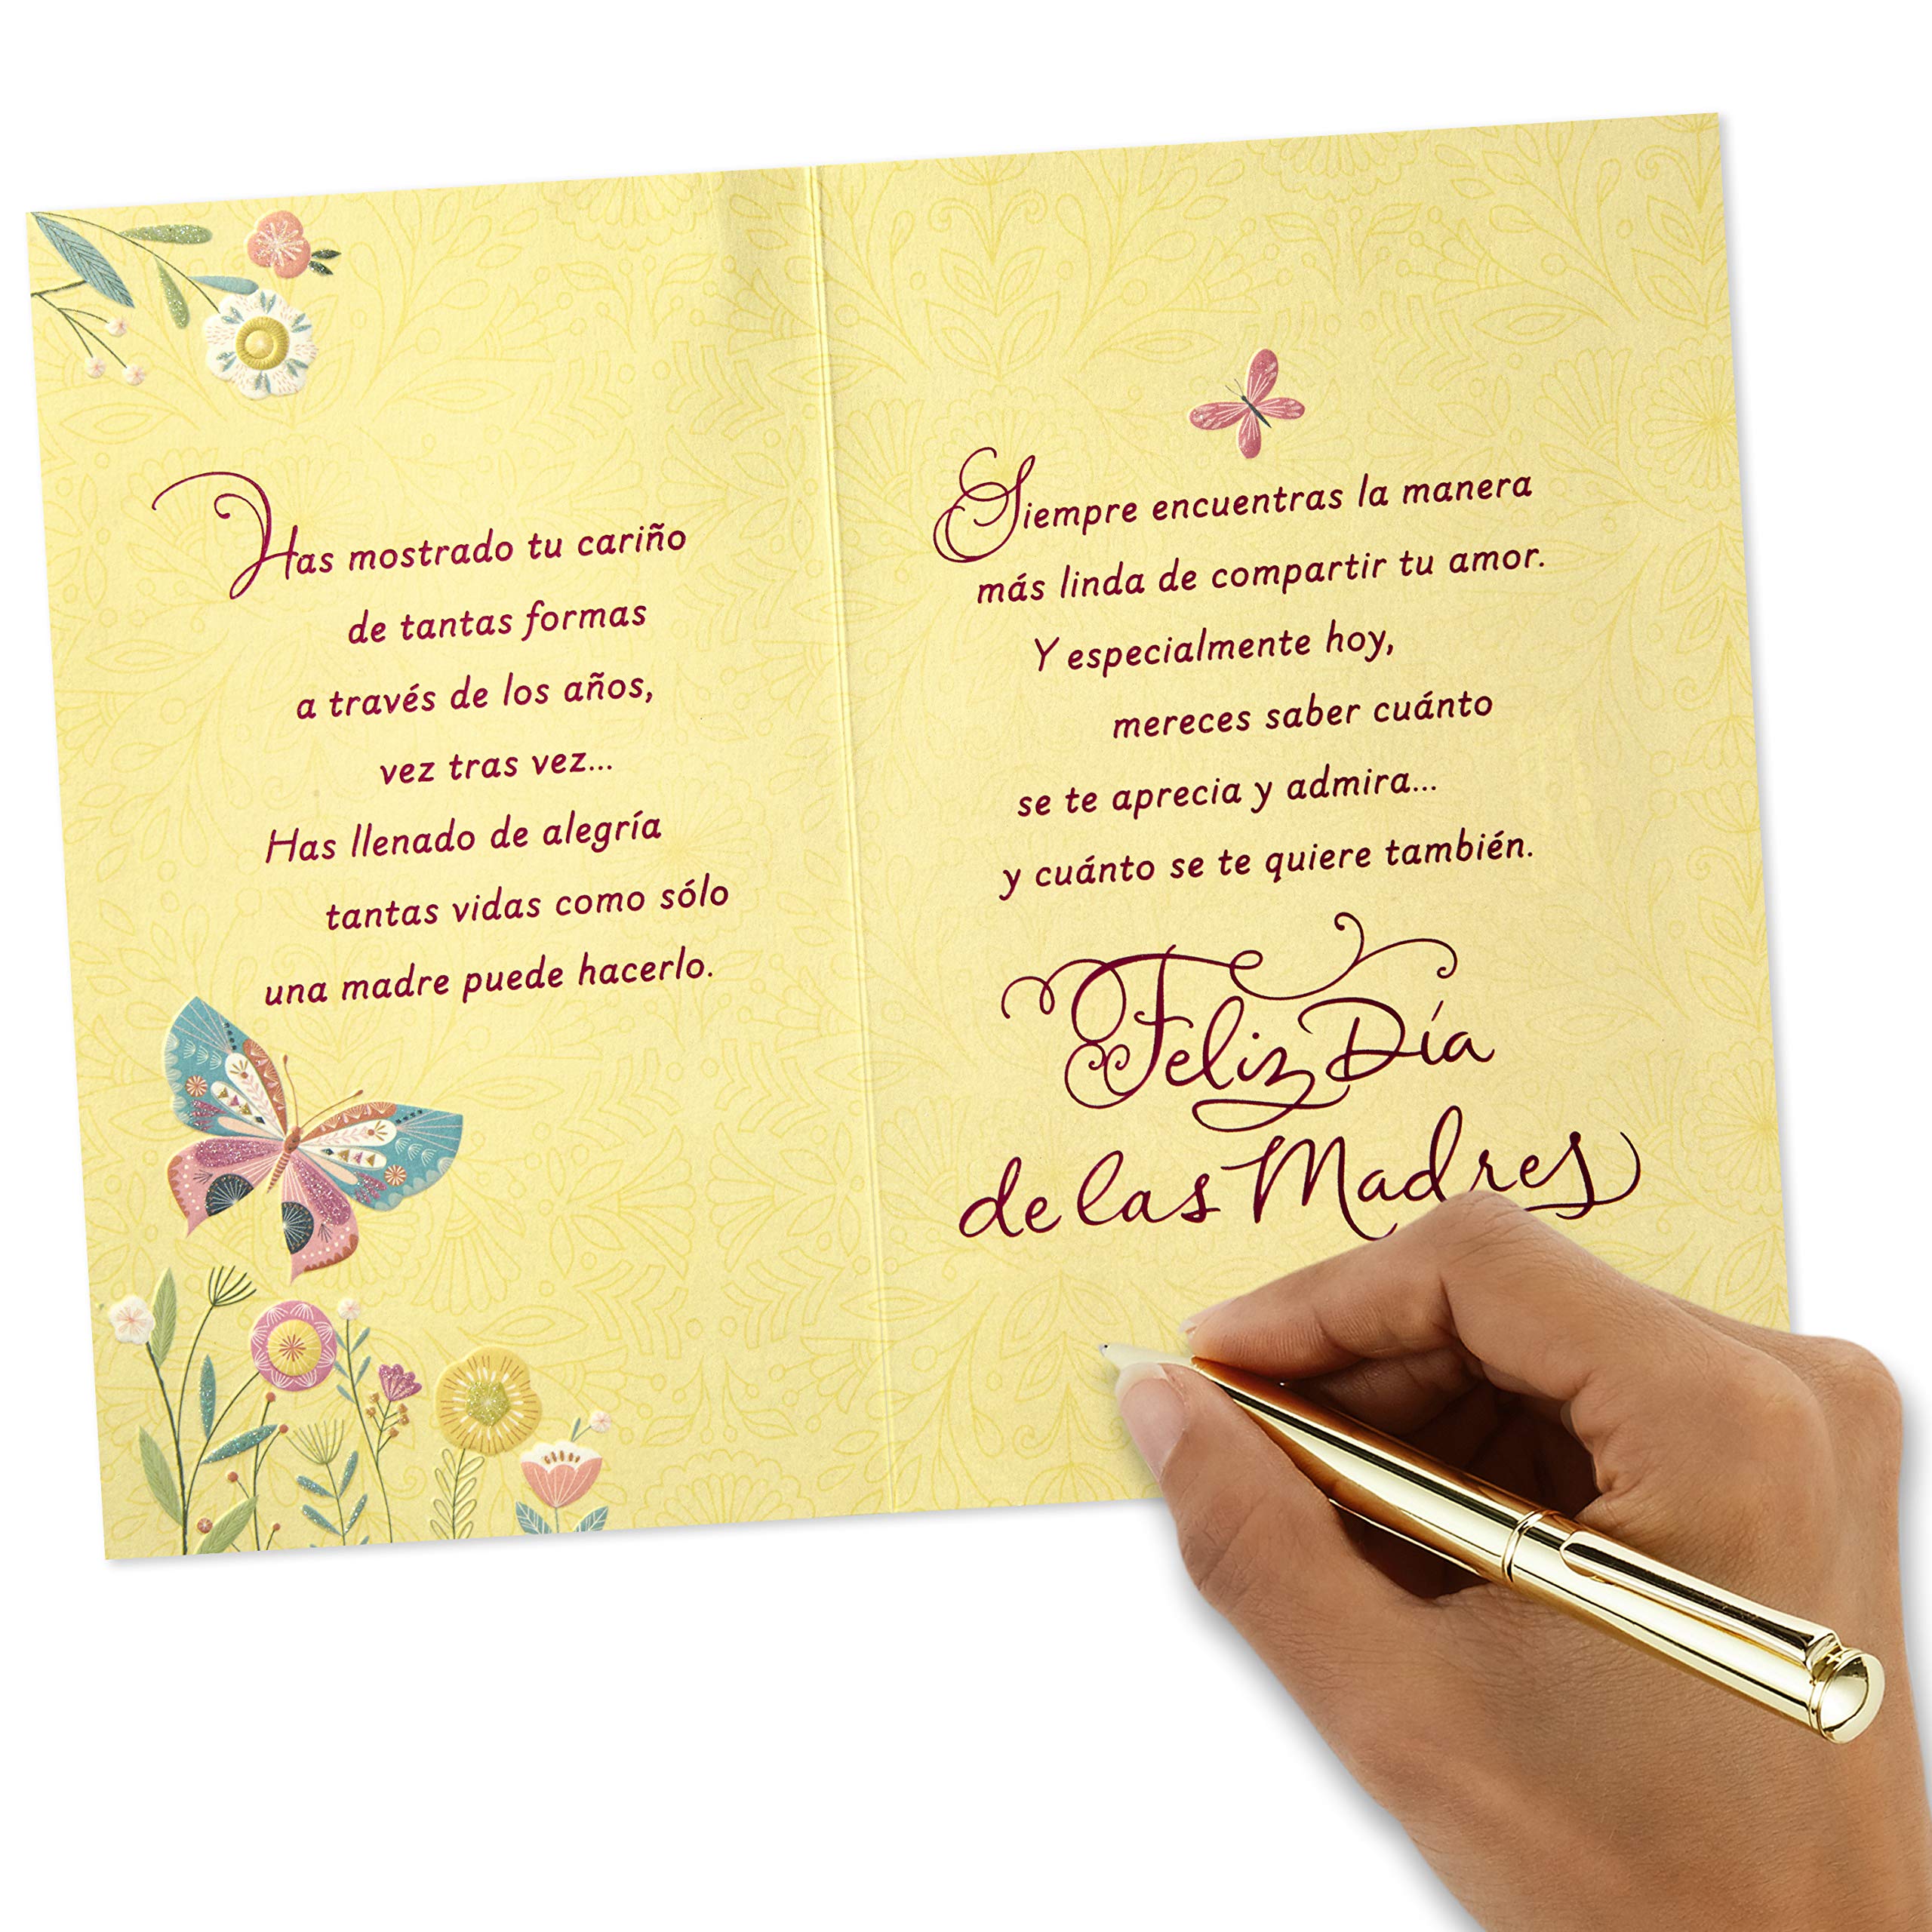 Has mostrado tu cariño
de tantas formas
a través de los años,
vez tras vez...
Has llenado de alegría
tantas vidas como sólo
una madre puede hacerlo.
Siempre encuentras la manera
más linda de compartir tu amor.
Y especialmente hoy,
mereces saber cuánto
se te aprecia y admira...
y cuánto se te quiere también.
Feliz Día
de las Madres